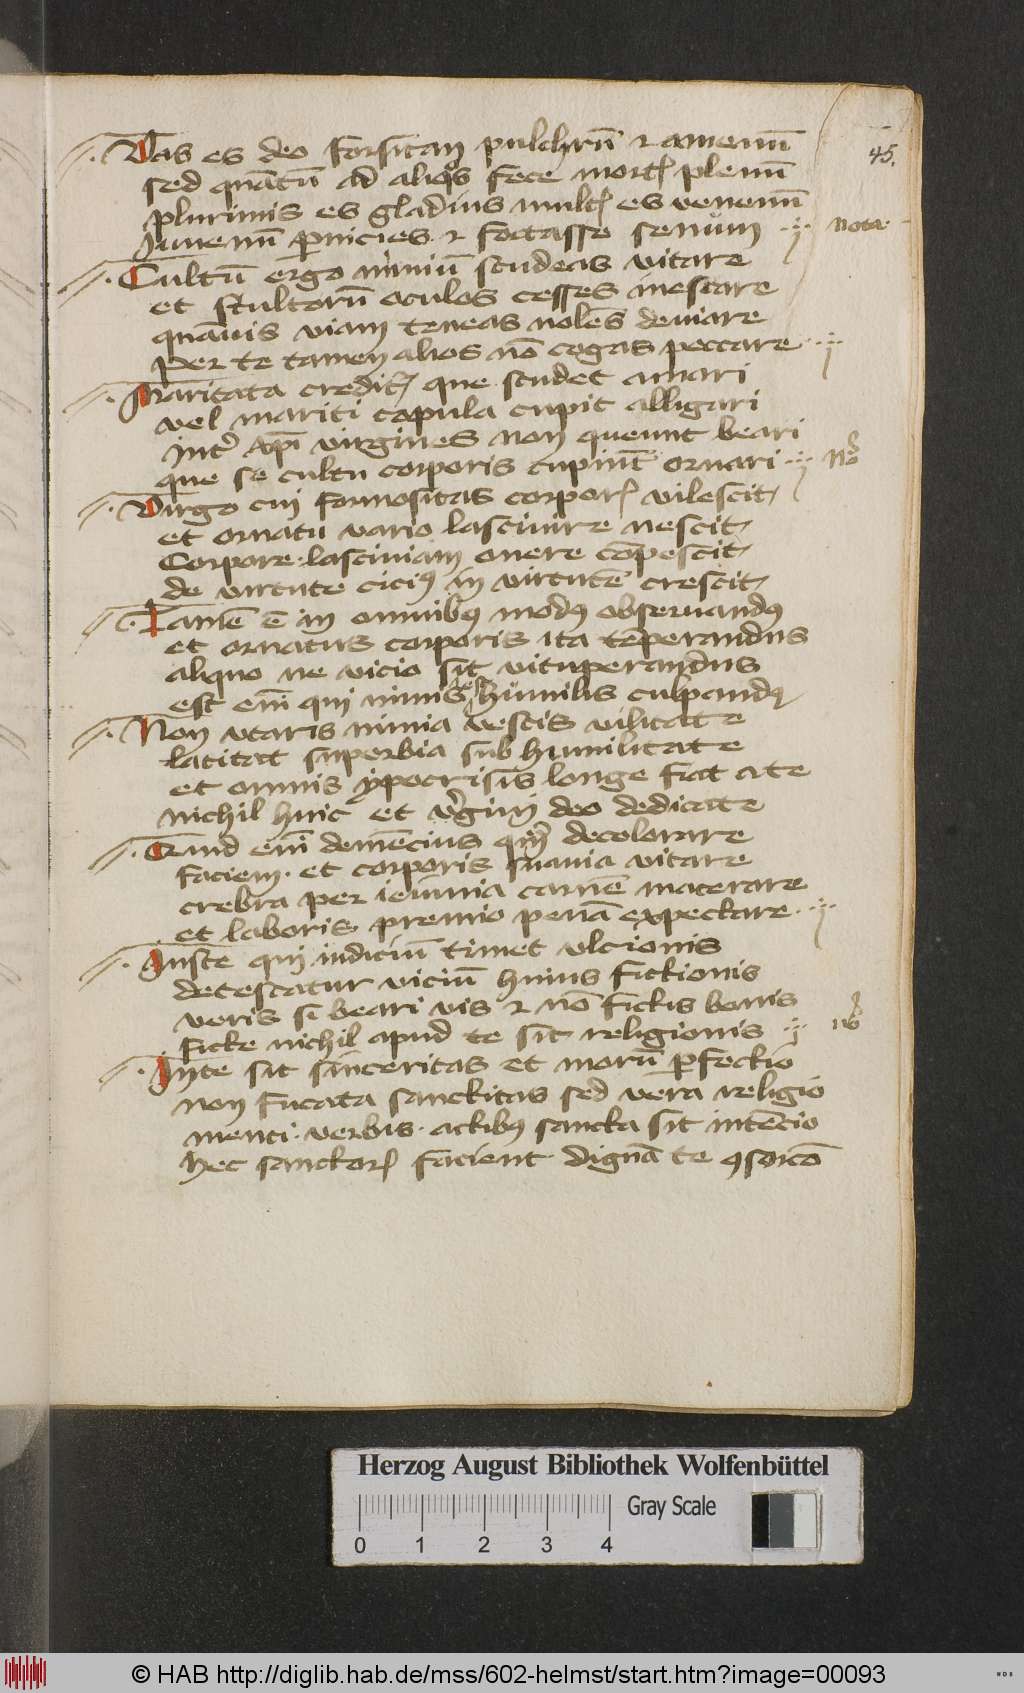 45.
Vas es deo forsitan pulchrū ⁊ amenū
sed quātū ad aliqs fece mortꝭ plenū
plurimis es gladius multꝭ es venenū
Iuuenū ꝑnicies ⁊ foctasse senūm nota
Cultū ergo nimiū studeas vitare
et stultorū oculos cesses inescare
quāuis viam teneas noles deuiare
per te tamen alios nō cogas peccare
Maritata credit̉ que studet amari
vel mariti copula cupit alligari
int̉ xpī virgines non queunt beari
que se cultu corporis cupiūt ornari no
Virgo cui formositas corporꝭ vilescit
et ornatu vario lasciuire nescit
Corpore lasciuiam onere cōpescit
de virtute cicius in virtutē crescit
Tamē ē in omnibꝰ modꝰ obseruandꝰ
et ornatus corporis ita tēperandus
aliquo ne vicio sit vituperandus
est enī qui nimis est humilis culpandꝰ
Non vtaris nimia vestis vilitate
latitat superbia sub humilitate
et omnis ypocrisis longe fiat a te
nichil huic et v̉gini deo dedicate
Quid enī demēcius quā decolorare
faciem. et corporis suauia vitare
crebra per ieiunia carnē macerare
et laboris premio penā expectare
Iuste qui iudiciū timet vlcionis
detestatur viciū huius fictionis
veris si beari vis ⁊ nō fictis bonis
ficte nichil apud te sit religionis no
In te sit sinceritas et morū ꝑfectio
non fucata sanctitas sed vera religio
menti. verbis. actibꝰ sancta sit intēcio
hec sanctorꝭ facient dignā te ꝯsorcō
Herzog August Bibliothek Wolfenbüttel
Gray Scale
0 1 2 3 4
© HAB http://diglib.hab.de/mss/602-helmst/start.htm?image=00093